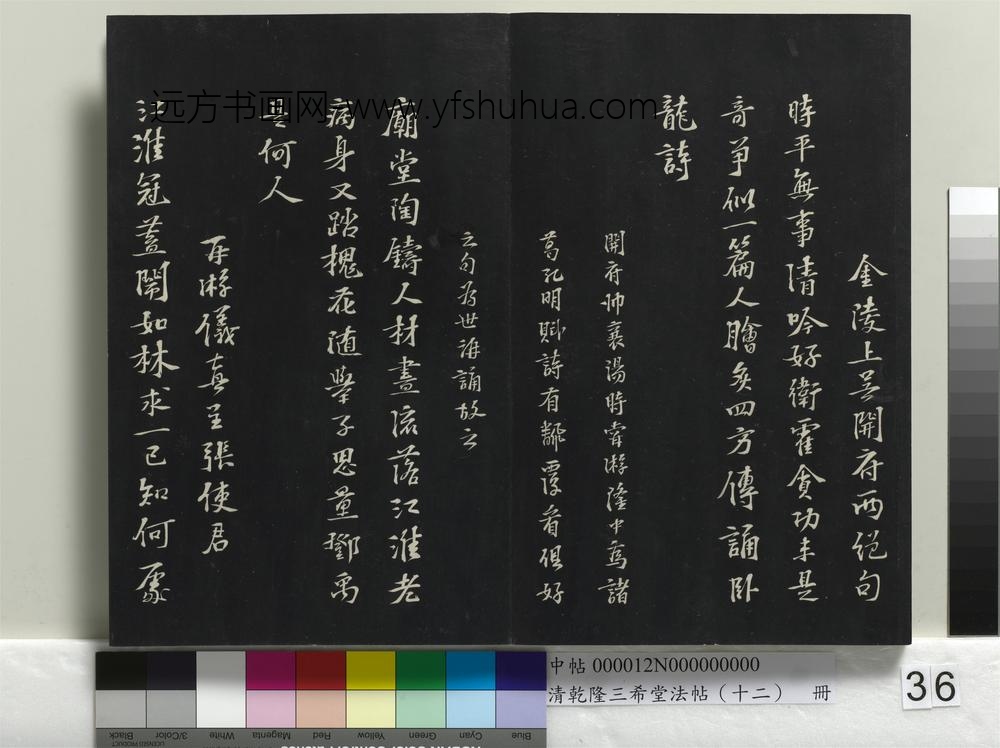 金陵上吴開府兩絶句
時平無事清吟好衛霍貪功未是
奇争似一篇人膾炙四方傳誦卧
龍詩
開府帥襄湯時嘗游隆中爲諸
葛孔明賦詩有翻覆看俱好
之句爲世海誦故云
廟堂陶鑄人材盡流落江淮老
病身又踏槐花隨舉子思量鄧禹
是何人
再游儀真呈張使君
江淮冠蓋鬧如林求一已知何處
远方书画网 www.yfshuhua.com
中帖 000012N000000000
清乾隆三希堂法帖（十二） 冊
36
Black
3/Color
White
Magenta
Red
Yellow
Green
Cyan
Blue